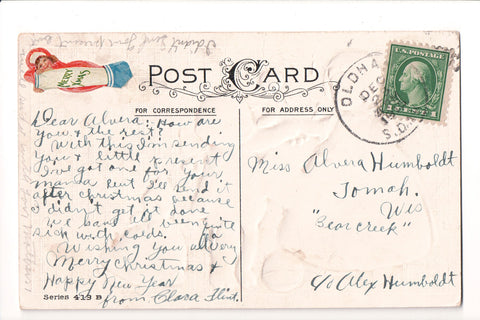 MERRY XMAS
POST CARD
FOR CORRESPONDENCE
FOR ADDRESS ONLY
U.S. POSTAGE
OLDHA
DEC
S.D.
Dear Alvera: How are
you & the rest?
With this I'm sending
you a little present
I've got one for your
mama but I'll send it
after christmas because
I didn't get it done
we have all been quite
sick with colds.
Wishing you all very
Merry christmas &
Happy New Year
from Clara Flint.
Series 413 B
Miss Alvera Humboldt
Tomah.
Wis
"Bear creek"
c/o Alex Humboldt
I didn't send